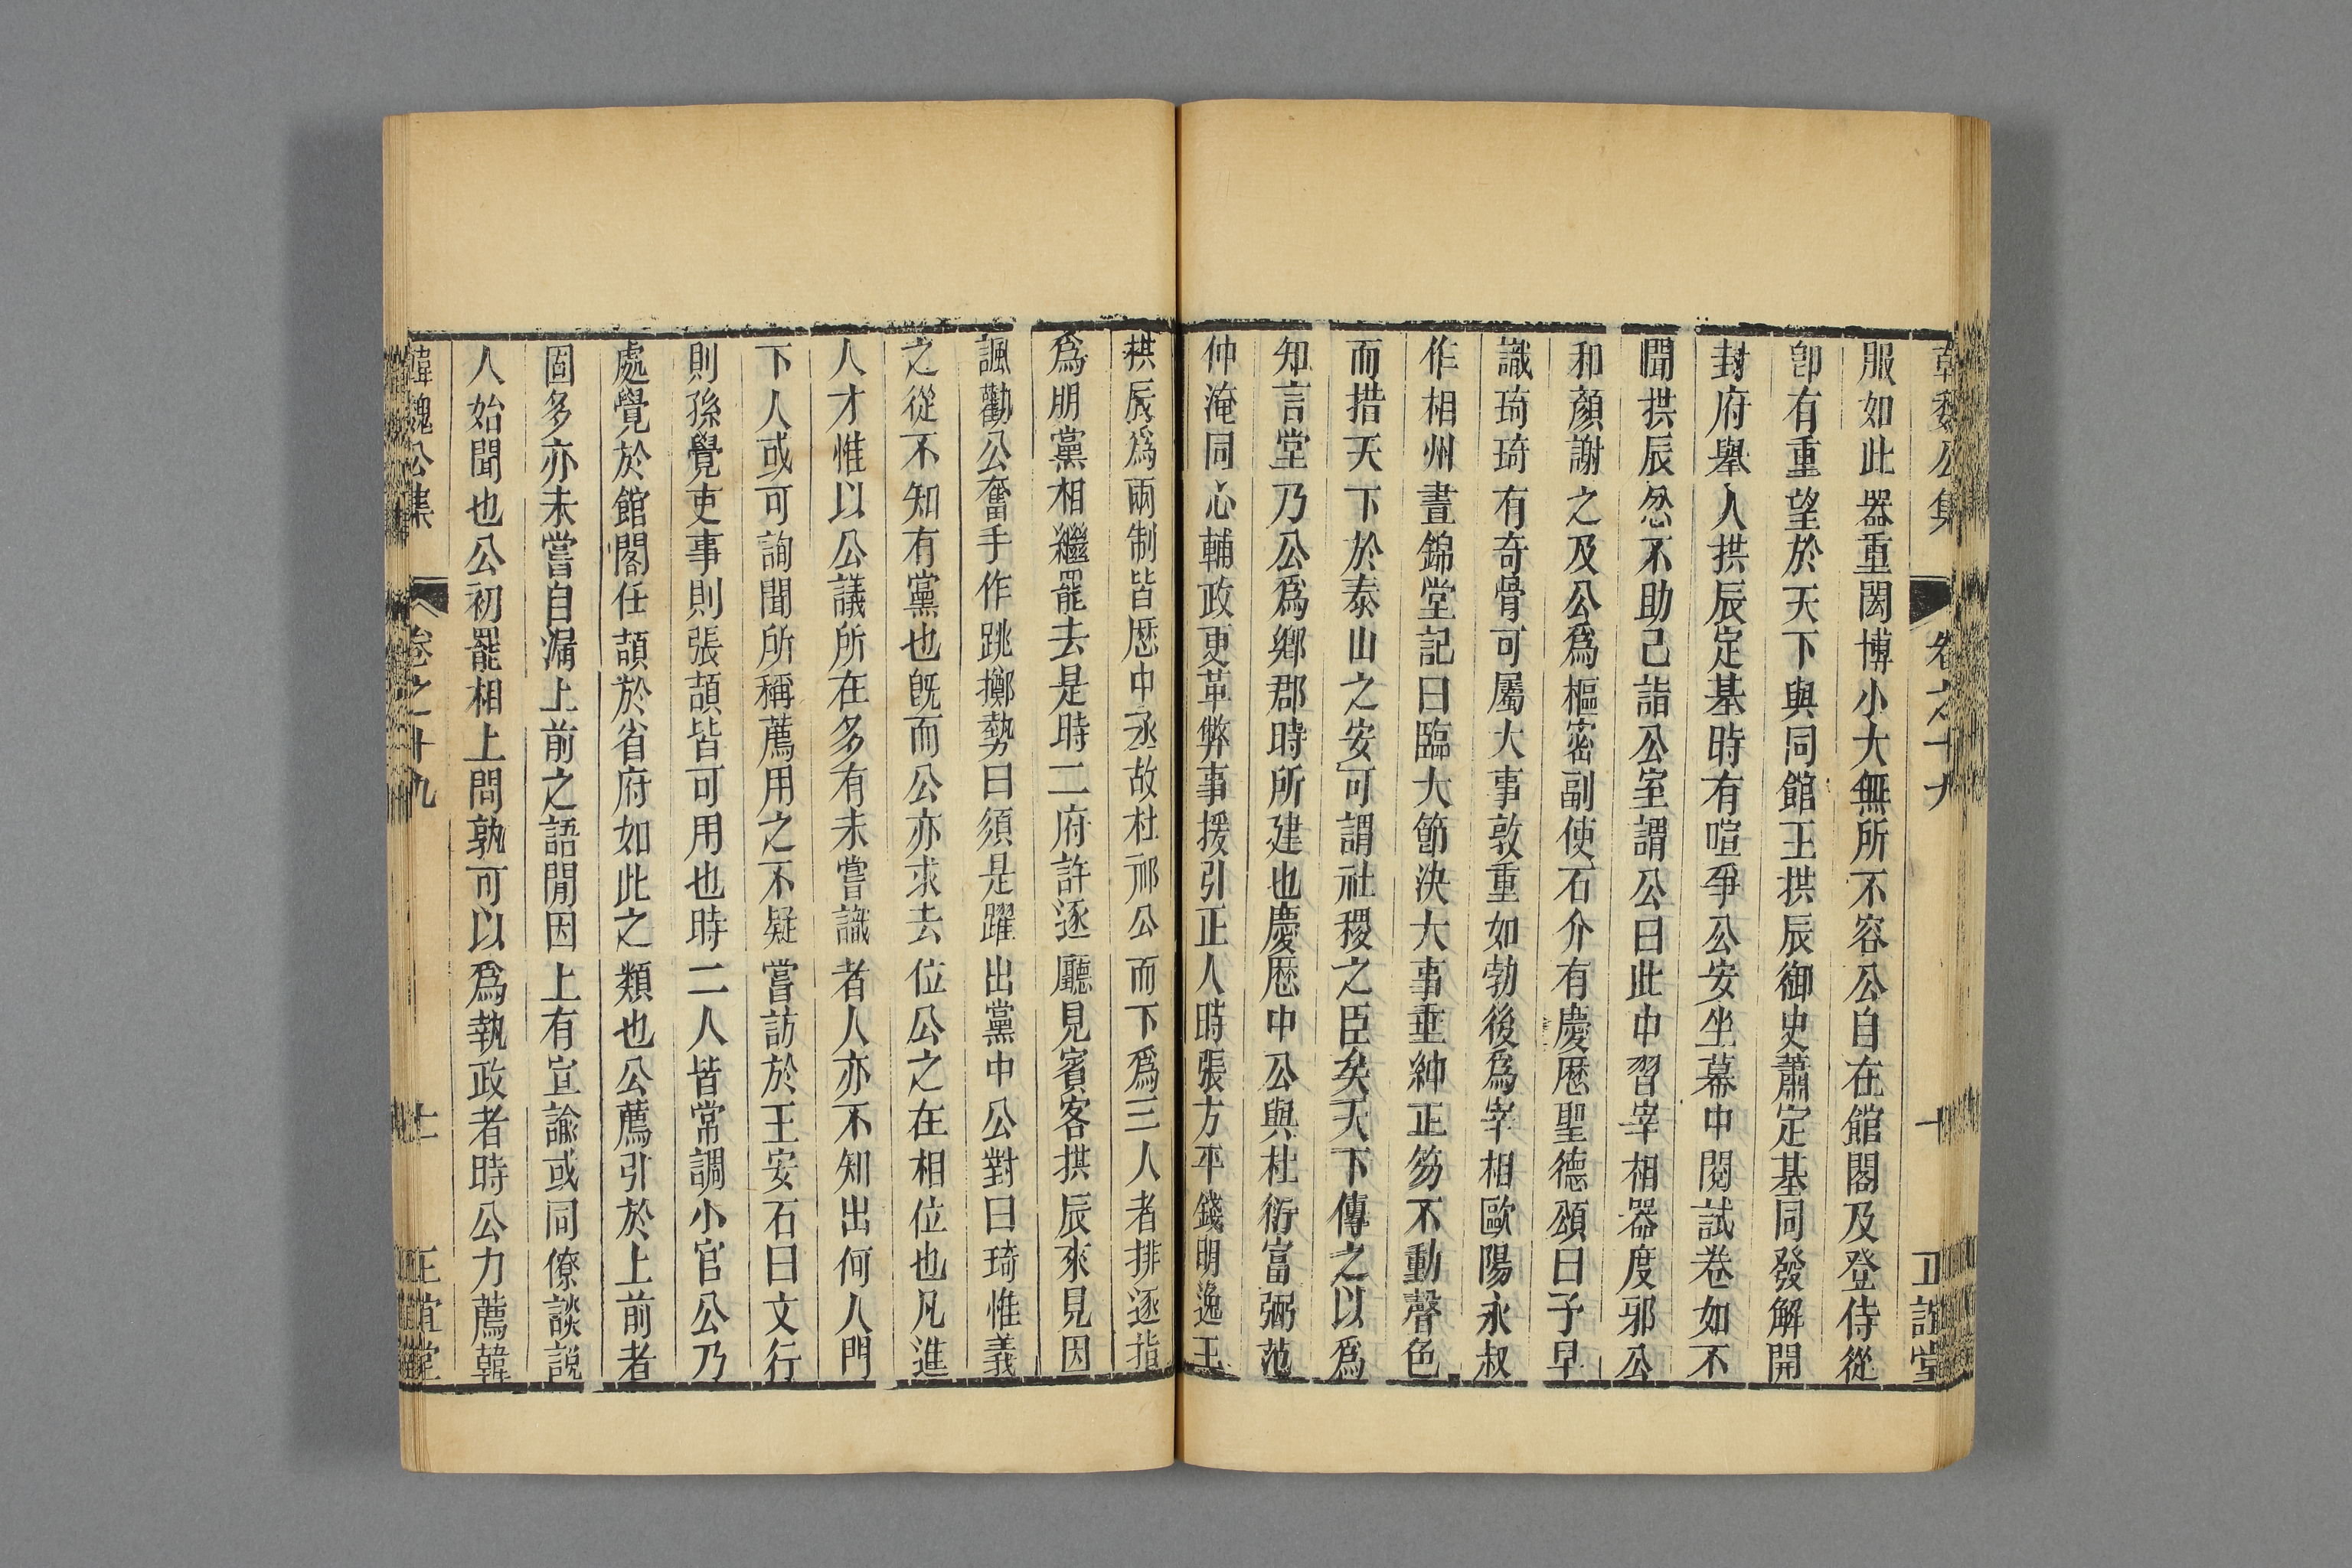 韓魏公集 卷之十九 十 正誼堂
服如此器重閎博小大無所不容公自在館閣及登侍從
卽有重望於天下與同館王拱辰御史蕭定基同發解開
封府舉人拱辰定基時有喧爭公安坐幕中閱試卷如不
聞拱辰忿不助己詣公室謂公曰此中習宰相器度邪公
和顏謝之及公爲樞密副使石介有慶厯聖德頌曰予早
識琦琦有奇骨可屬大事敦重如勃後爲宰相歐陽永叔
作相州晝錦堂記曰臨大節決大事垂紳正笏不動聲色
而措天下於泰山之安可謂社稷之臣矣天下傳之以爲
知言堂乃公爲鄉郡時所建也慶厯中公與杜衍富弼范
仲淹同心輔政更革弊事援引正人時張方平錢明逸王
拱辰爲兩制皆厯中丞故杜祁公而下爲三人者排逐指
爲朋黨相繼罷去是時二府許逐廳見賓客拱辰來見因
諷勸公奮手作跳擲勢曰須是躍出黨中公對曰琦惟義
之從不知有黨也旣而公亦求去位公之在相位也凡進
人才惟以公議所在多有未嘗識者人亦不知出何人門
下人或可詢聞所稱薦用之不疑嘗訪於王安石曰文行
則孫覺吏事則張頡皆可用也時二人皆常調小官公乃
處覺於館閣任頡於省府如此之類也公薦引於上前者
固多亦未嘗自漏上前之語閒因上有宣諭或同僚談說
人始聞也公初罷相上問孰可以爲執政者時公力薦韓
韓魏公集 卷之十九 十一 正誼堂